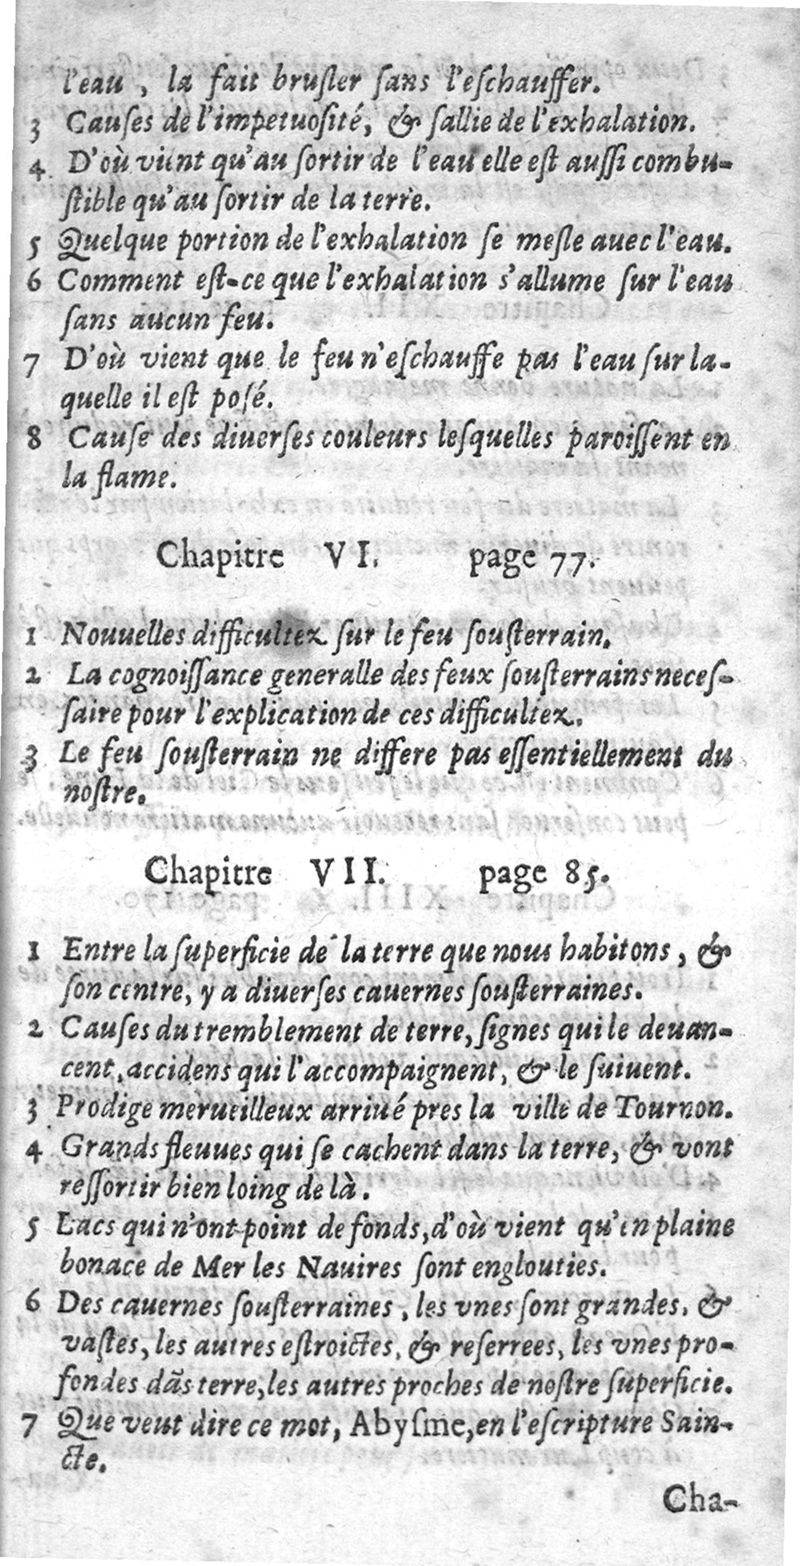 l'eau, la fait bruſler ſans l'eſchauffer.
3 Cauſes de l'impetuoſité, & ſallie de l'exhalation.
4 D'où vient qu'au ſortir de l'eau elle eſt auſſi combu-
ſtible qu'au ſortir de la terre.
5 Quelque portion de l'exhalation ſe meſle auec l'eau.
6 Comment eſt-ce que l'exhalation s'allume ſur l'eau
ſans aucun feu.
7 D'où vient que le feu n'eſchauffe pas l'eau ſur la-
quelle il eſt poſé.
8 Cauſe des diuerſes couleurs leſquelles paroiſſent en
la flame.
Chapitre VI. page 77.
1 Nouuelles difficultez ſur le feu ſouſterrain.
2 La cognoiſſance generalle des feux ſouſterrains neceſ-
ſaire pour l'explication de ces difficultez.
3 Le feu ſouſterrain ne differe pas eſſentiellement du
noſtre.
Chapitre VII. page 85.
1 Entre la ſuperficie de la terre que nous habitons, &
ſon centre, y a diuerſes cauernes ſouſterraines.
2 Cauſes du tremblement de terre, ſignes qui le deuan-
cent, accidens qui l'accompaignent, & le ſuiuent.
3 Prodige merueilleux arriué pres la ville de Tournon.
4 Grands fleuues qui ſe cachent dans la terre, & vont
reſſortir bien loing de là.
5 Lacs qui n'ont point de fonds, d'où vient qu'en plaine
bonace de Mer les Nauires ſont englouties.
6 Des cauernes ſouſterraines, les vnes ſont grandes, &
vaſtes, les autres eſtroictes, & reſerrees, les vnes pro-
fondes dãs terre, les autres proches de noſtre ſuperficie.
7 Que veut dire ce mot, Abyſme, en l'eſcripture Sain-
cte.
Cha-